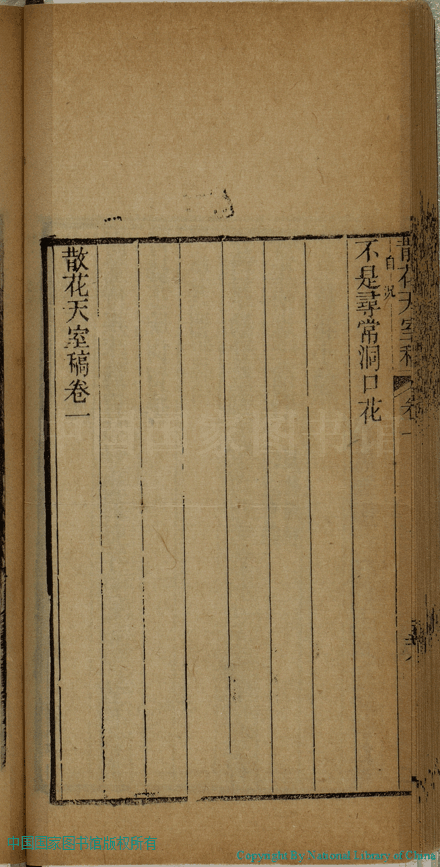 散花天室稿 卷一
自况
不是尋常洞口花
散花天室稿卷一
中国国家图书馆
中国国家图书馆版权所有
Copyright By National Library of China